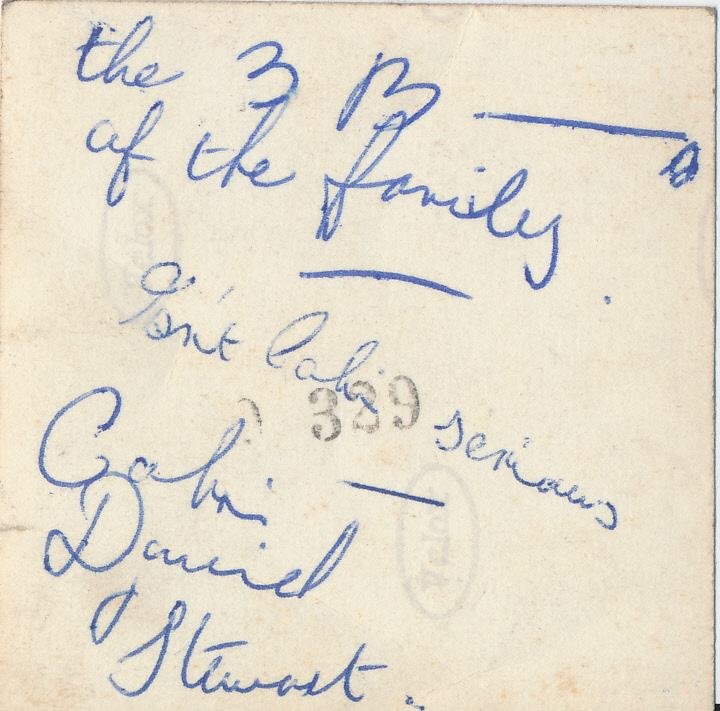 the 3 B——s
of the family.
Isn't Colin serious
Colin —
David
Stewart.
Velox
Velox